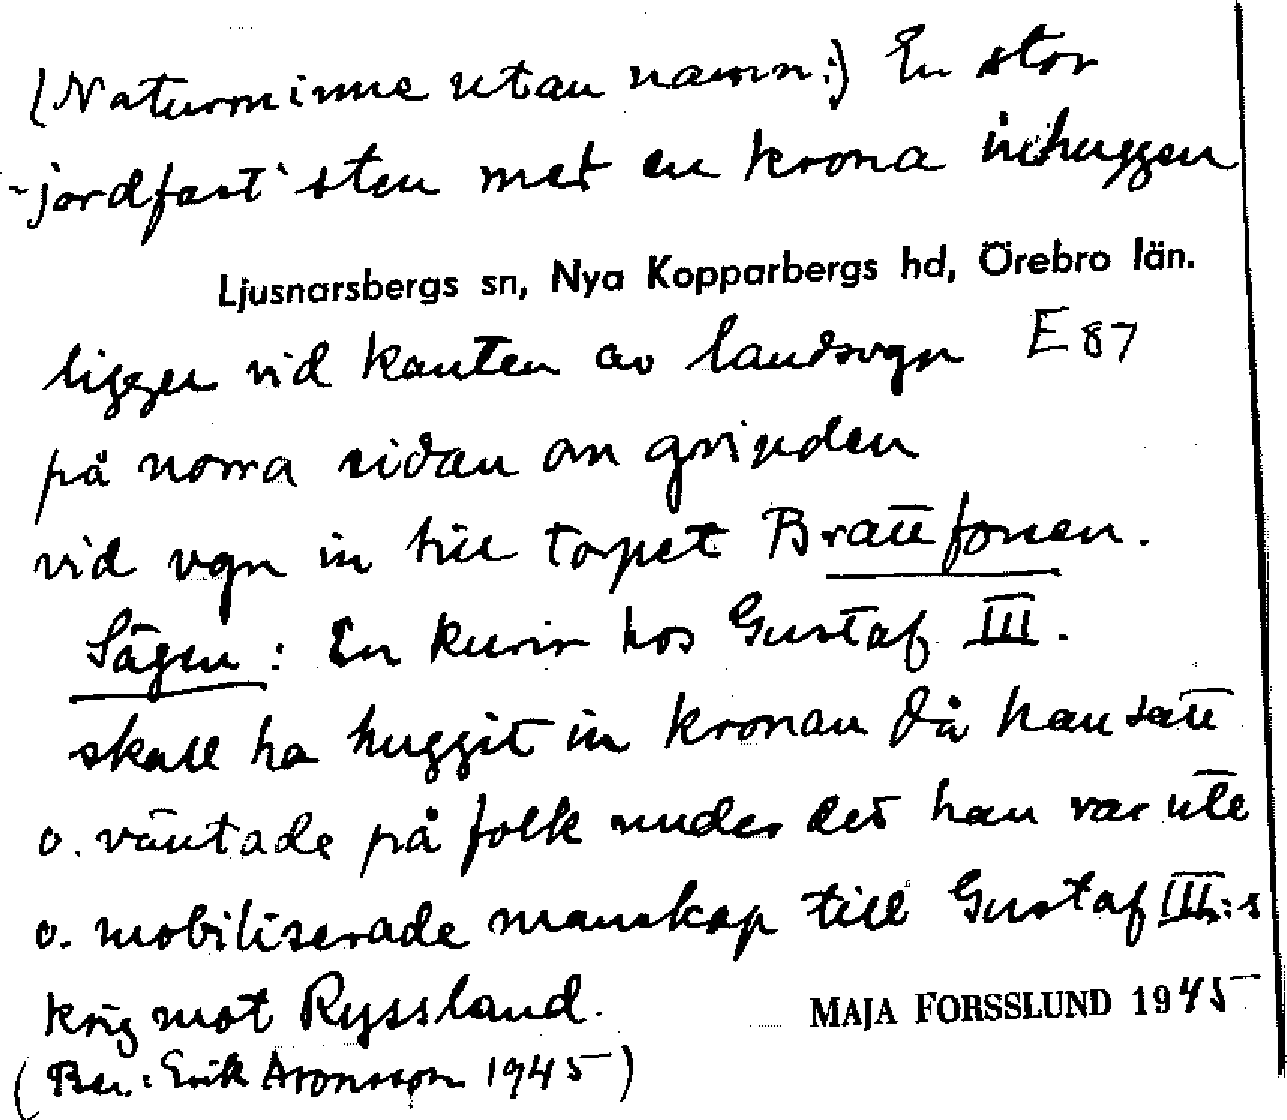 (Naturminne utan namn:) En stor
jordfast sten med en krona inhuggen
Ljusnarsbergs sn, Nya Kopparbergs hd, Örebro län.
ligger vid kanten av landsvgn E 87
på norra sidan om grinden
vid vgn in till torpet Brattforsen.
Sägen: En kurir hos Gustaf III.
skall ha huggit in kronan då han satt
o. väntade på folk under det han var ute
o. mobiliserade manskap till Gustaf III:s
krig mot Ryssland.
MAJA FORSSLUND 1945
(Ber.: Erik Aronsson 1945)